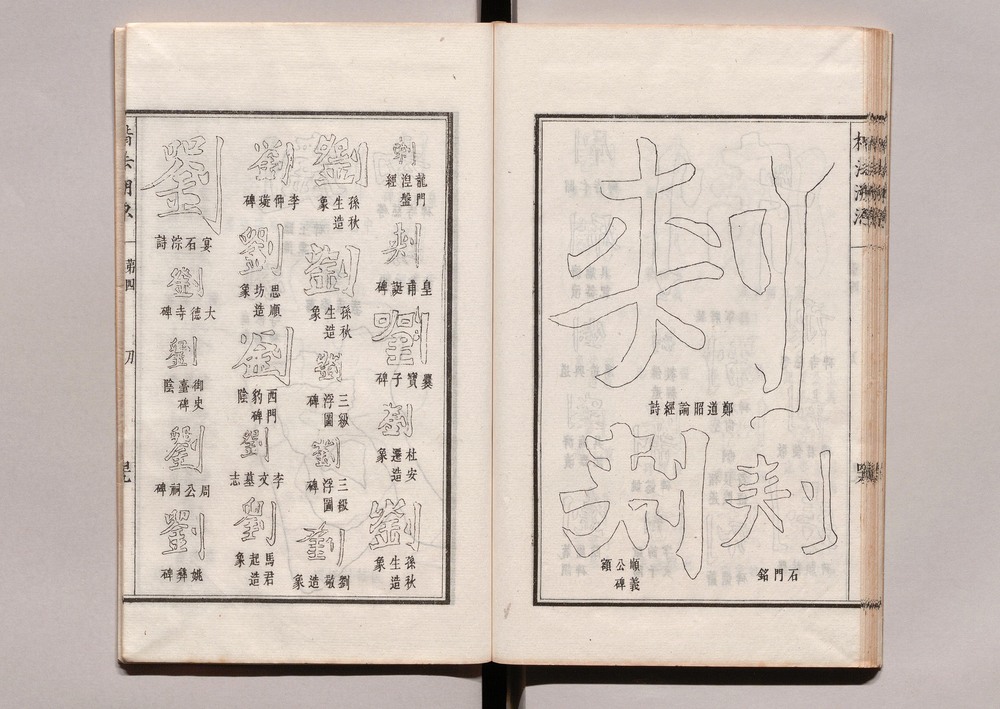 鄭道昭論經詩
石門銘
順義
公碑
額
龍門
湼盤
經
皇甫誕碑
劉
爨寶子碑
劉
杜安
遷造
象
劉
孫秋
生造
象
劉
孫秋
生造
象
劉
孫秋
生造
象
劉
三級
浮圖
碑
劉
三級
浮圖
碑
劉
劉敬造象
劉
李仲璇碑
劉
思順
坊造
象
劉
西門
豹碑
陰
劉
李文墓志
劉
馬君
起造
象
劉
宴石淙詩
劉
大德寺碑
劉
御史
臺碑
陰
劉
周公祠碑
劉
姚彝碑
第四
刀